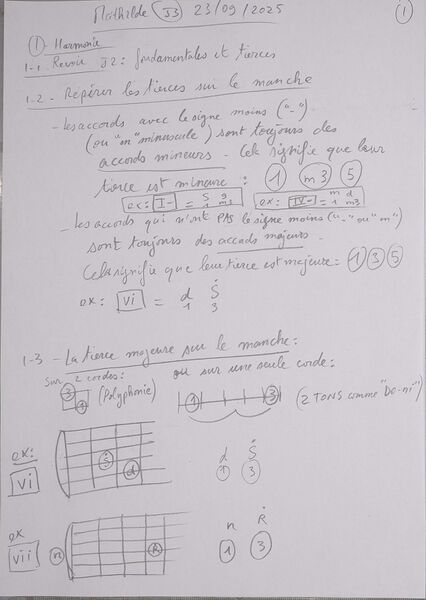 Mathilde J3 23/09/2025 1
1 - Harmonie
1-1 - Revoir J2: fondamentales et tierces
1-2 - Repérer les tierces sur le manche
- Les accords avec le signe moins ("-")
(ou "m" minuscule) sont toujours des
accords mineurs - Cela signifie que leur
tierce est mineure : 1 m3 5
ex: I- = S 1 g m3 ex: IV- = m 1 d m3
- les accords qui n'ont PAS le signe moins ("-" ou "m")
sont toujours des accords majeurs -
Cela signifie que leur tierce est majeure: 1 3 5
ex: VI = d Ṡ
1 3
1-3 - La tierce majeure sur le manche:
sur 2 cordes: ou sur une seule corde:
3 1 (Polyphonie) 1 3 (2 TONS comme "Do-mi")
ex:
VI Ṡ d d Ṡ
1 3
ex n Ṙ
VII n R 1 3